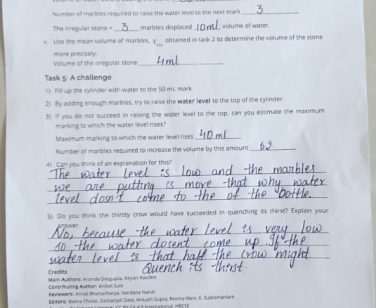 Number of marbles required to raise the water level to the next mark 3
The irregular stone = 3 marbles displaced 10ml volume of water.
v. Use the mean volume of marbles, obtained in task 2 to determine the volume of the stone
more precisely.
Volume of the irregular stone 4ml
Task 5: A challenge
1) Fill up the cylinder with water to the 50 mL mark.
2) By adding enough marbles, try to raise the water level to the top of the cylinder.
3) If you do not succeed in raising the water level to the top, can you estimate the maximum
marking to which the water level rises?
Maximum marking to which the water level rises 40 ml
Number of marbles required to increase the volume by this amount 62
4) Can you think of an explanation for this?
The water level is low and the marbles
we are putting is move that why water
level dosn't come to the of the bottle.
5) Do you think the thirsty crow would have succeeded in quenching its thirst? Explain your
answer.
No, because the water level is very low
so the water dosent come up If the
water level is that half the crow might
Quench its thirst.
Credits
Main Authors: Ananda Dasgupta,
Contributing Author: Aniket Sule
Reviewers: Arnab Bhattacharya, Vandana Nanal
Editors: Beena Choksi, Geetanjali Date, Ankush Gupta, Reema Mani, K. Subramaniam